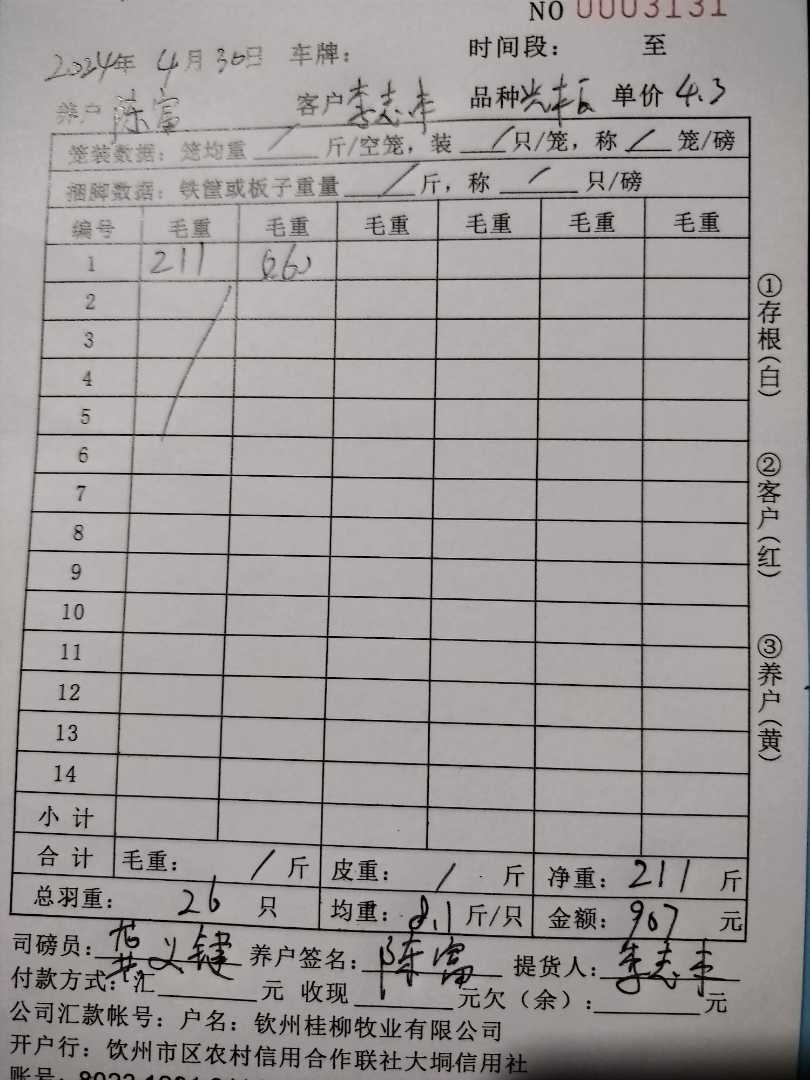 NO 0003131
2024年 4月 30日 车牌： 时间段： 至
养户 陈富 客户 李志丰 品种 单价 4.3
笼装数据：笼均重 / 斤/空笼，装 / 只/笼，称 / 笼/磅
捆脚数据：铁筐或板子重量 / 斤，称 / 只/磅
编号 毛重 毛重 毛重 毛重 毛重 毛重
1 211
2
3
4
5
6
7
8
9
10
11
12
13
14
小计
合计 毛重： / 斤 皮重： / 斤 净重：211 斤
总羽重： 26 只 均重：8.1 斤/只 金额：907 元
司磅员： 养户签名：陈富 提货人：李志丰
付款方式：汇 元 收现 元欠（余）： 元
公司汇款帐号：户名：钦州桂柳牧业有限公司
开户行：钦州市区农村信用合作联社大垌信用社
账号：
①存根(白)
②客户(红)
③养户(黄)